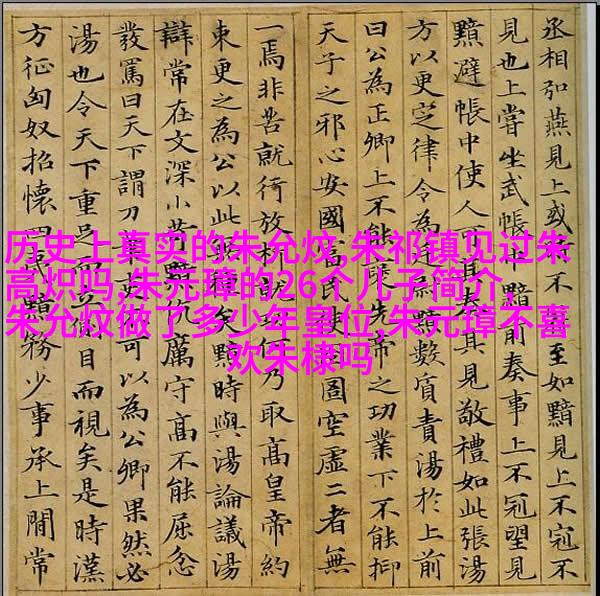 丞相弘燕見上或不至如黯見上不冠不
見也上嘗坐武帳前奏事上不冠望見
黯避帳中使人可其奏其見敬禮如此張湯
方以更定律令為黯數質責湯於上前
曰公為正卿上不能先帝之功業下不能抑
天子之邪心安國富民圄空虛二者無
一焉非苦就行放析就何乃取高皇帝約
束更之為公以此矣黯時與湯論議湯
辯常在文深小苛黯伉厲守高不能屈忿
發罵曰天下謂刀可以為公卿果然必
湯也令天下重足而目而視矣是時漢
方征匈奴招懷四夷黯務少事承上間常
历史上真实的朱允炆,朱祁镇见过朱
高炽吗,朱元璋的26个儿子简介,
朱允炆做了多少年皇位,朱元璋不喜
欢朱棣吗